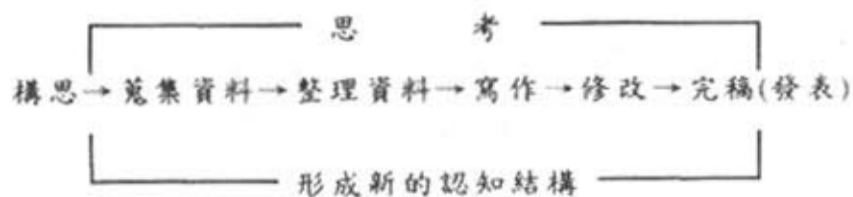 思考
構思→蒐集資料→整理資料→寫作→修改→完稿(發表)
形成新的認知結構